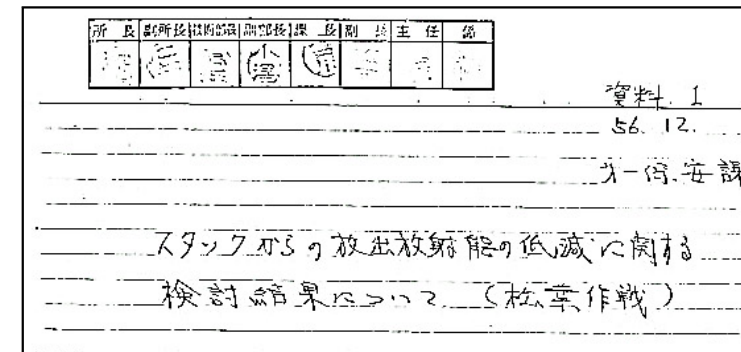 所長 副所長 技術部長 副部長 課長 副長 主任 係
資料. 1
56. 12.
オ一保安課
スタックからの放出放射能の低減に関する
検討結果について (松葉作戦)